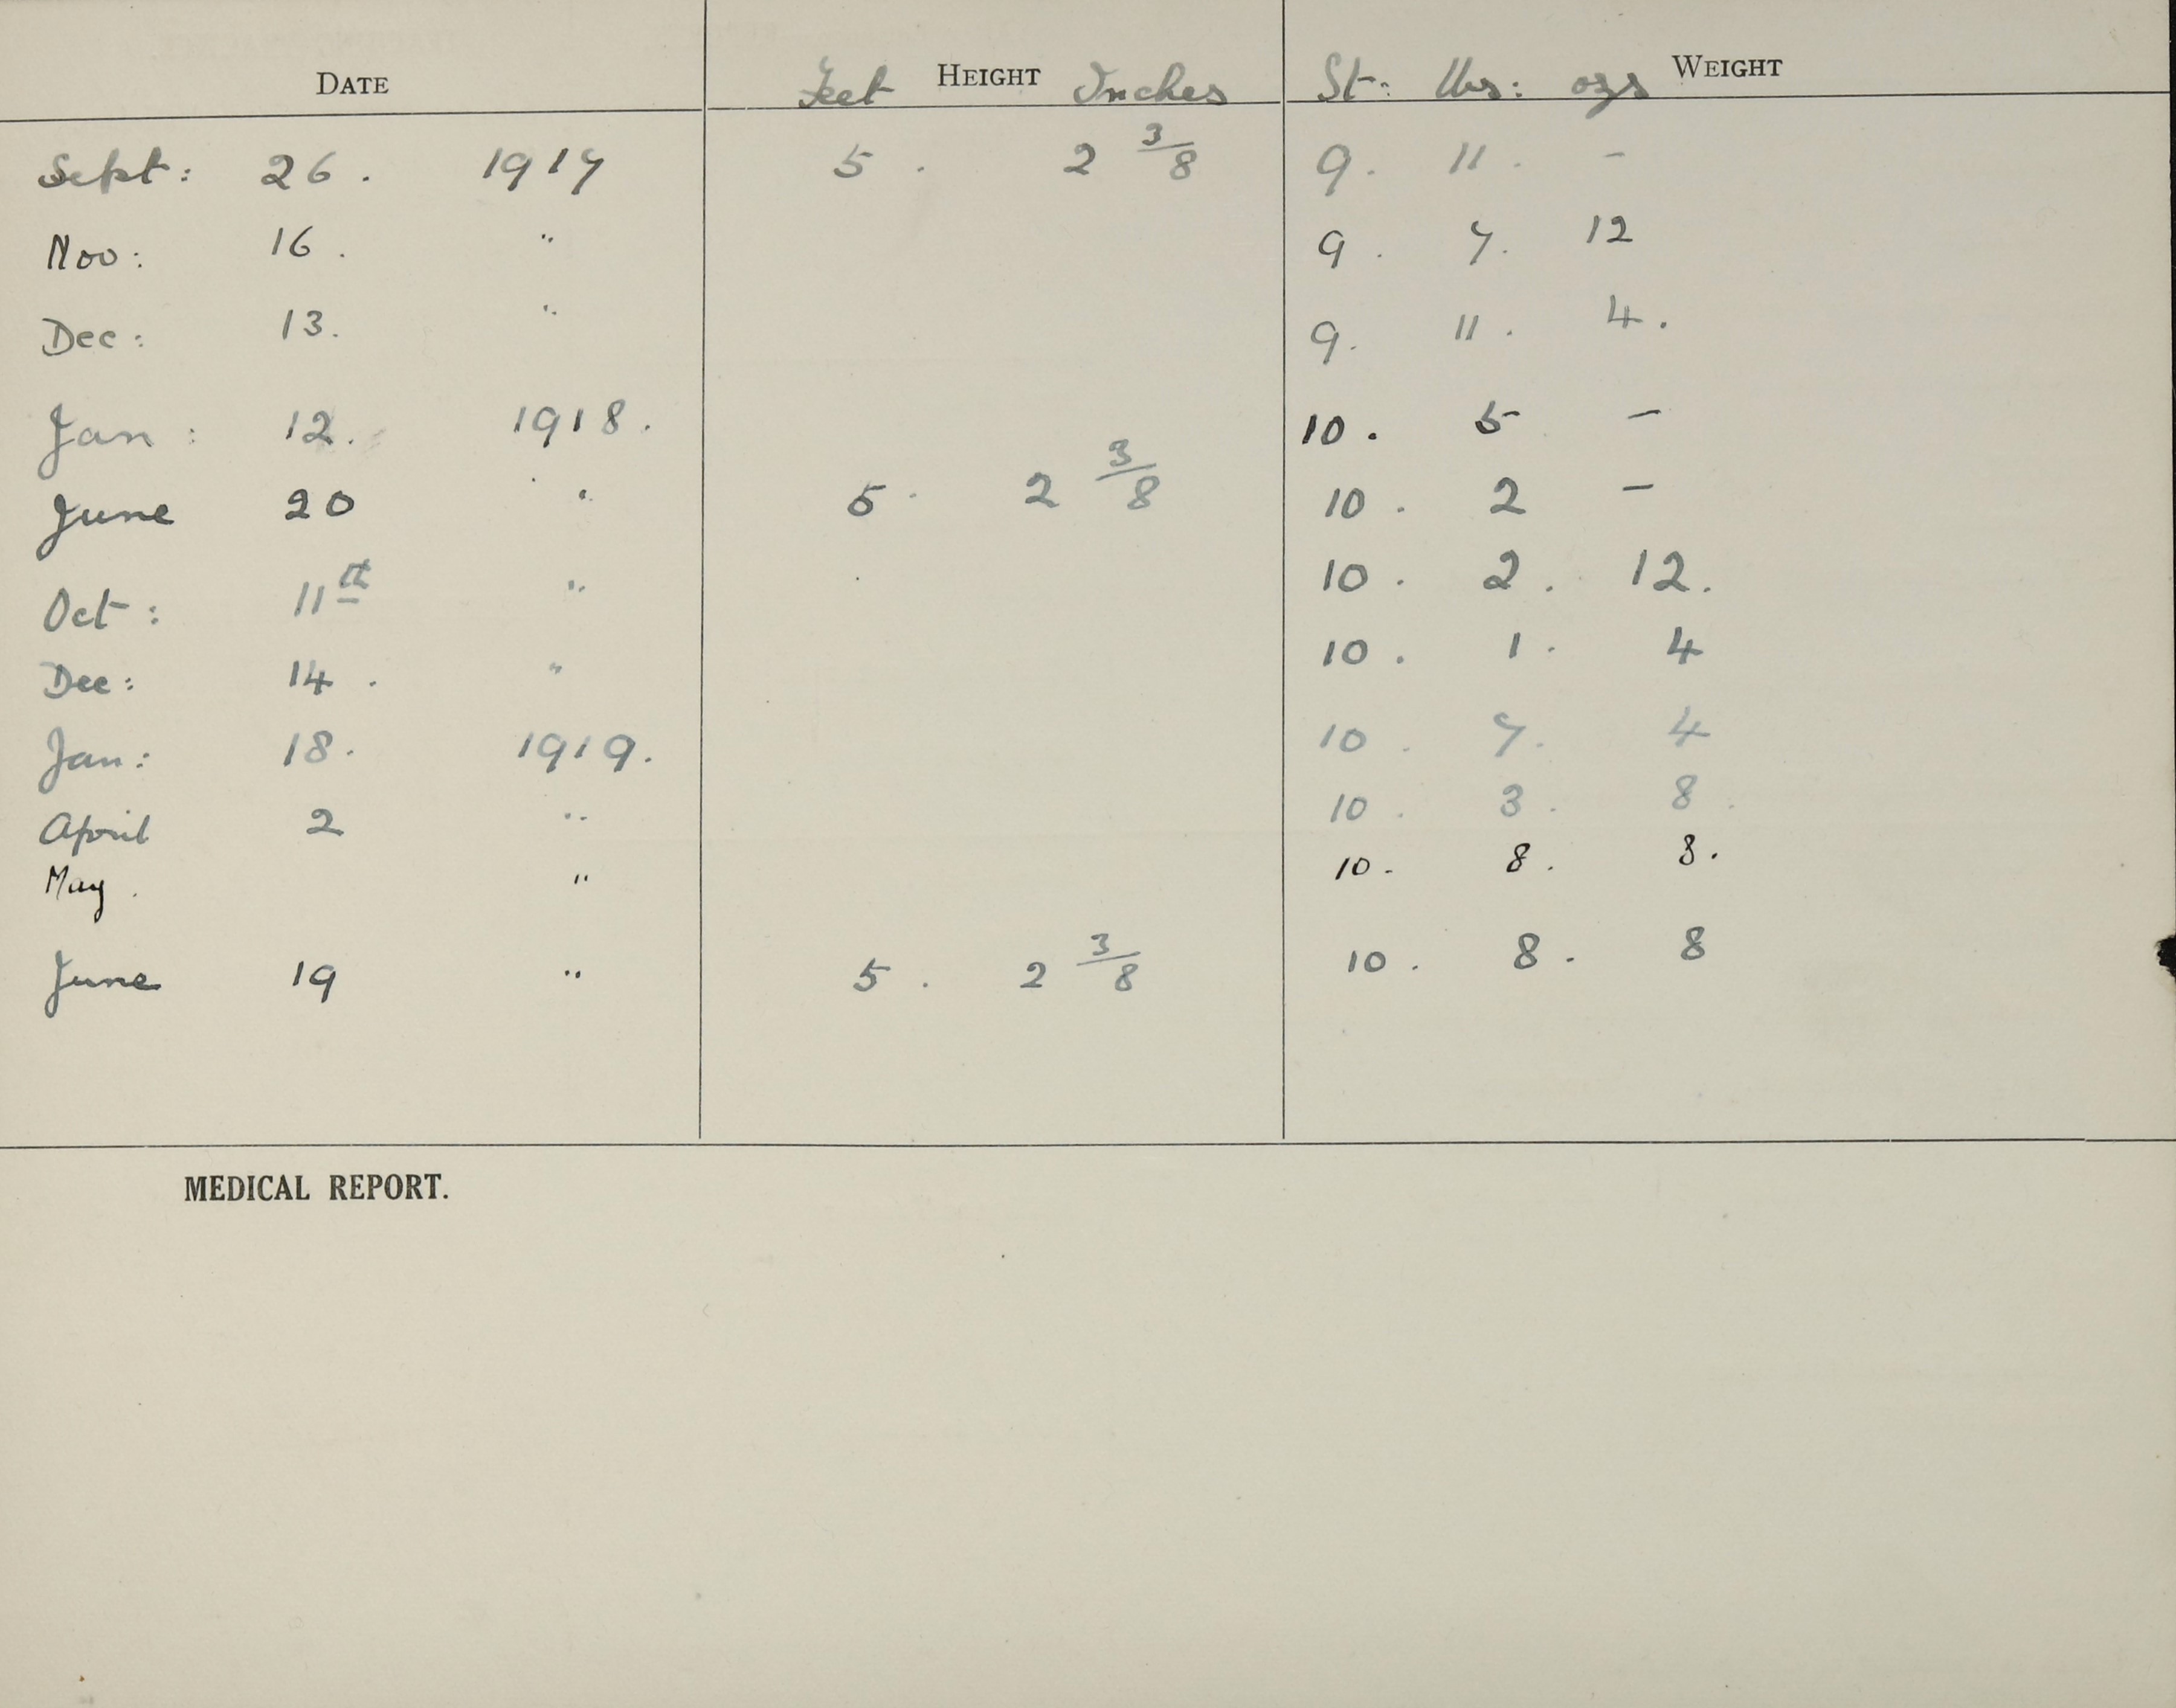 DATE Feet HEIGHT Inches St: lbs: ozs WEIGHT
Sept: 26. 1917 5. 2 3/8 9. 11. -
Nov: 16. " 9. 7. 12
Dec: 13. " 9. 11. 4.
Jan: 12. 1918. 10. 5 -
June 20 " 5. 2 3/8 10. 2 -
Oct: 11th " 10. 2. 12.
Dec: 14. " 10. 1. 4
Jan: 18. 1919. 10. 7. 4
April 2 " 10. 3. 8.
May. " 10. 8. 8.
June 19 " 5. 2 3/8 10. 8. 8
MEDICAL REPORT.